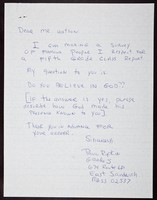 Dear Mr.
I am making a survey
of famous people I respect for
a fifth grade class report
My question to you is:
Do you believe in God??
[If the answer is yes, please
describe how God made his
presence known to you]
Thank you in advance for
your answer.
Sincerely
Grade 5
East Sandwich
Mass 02537